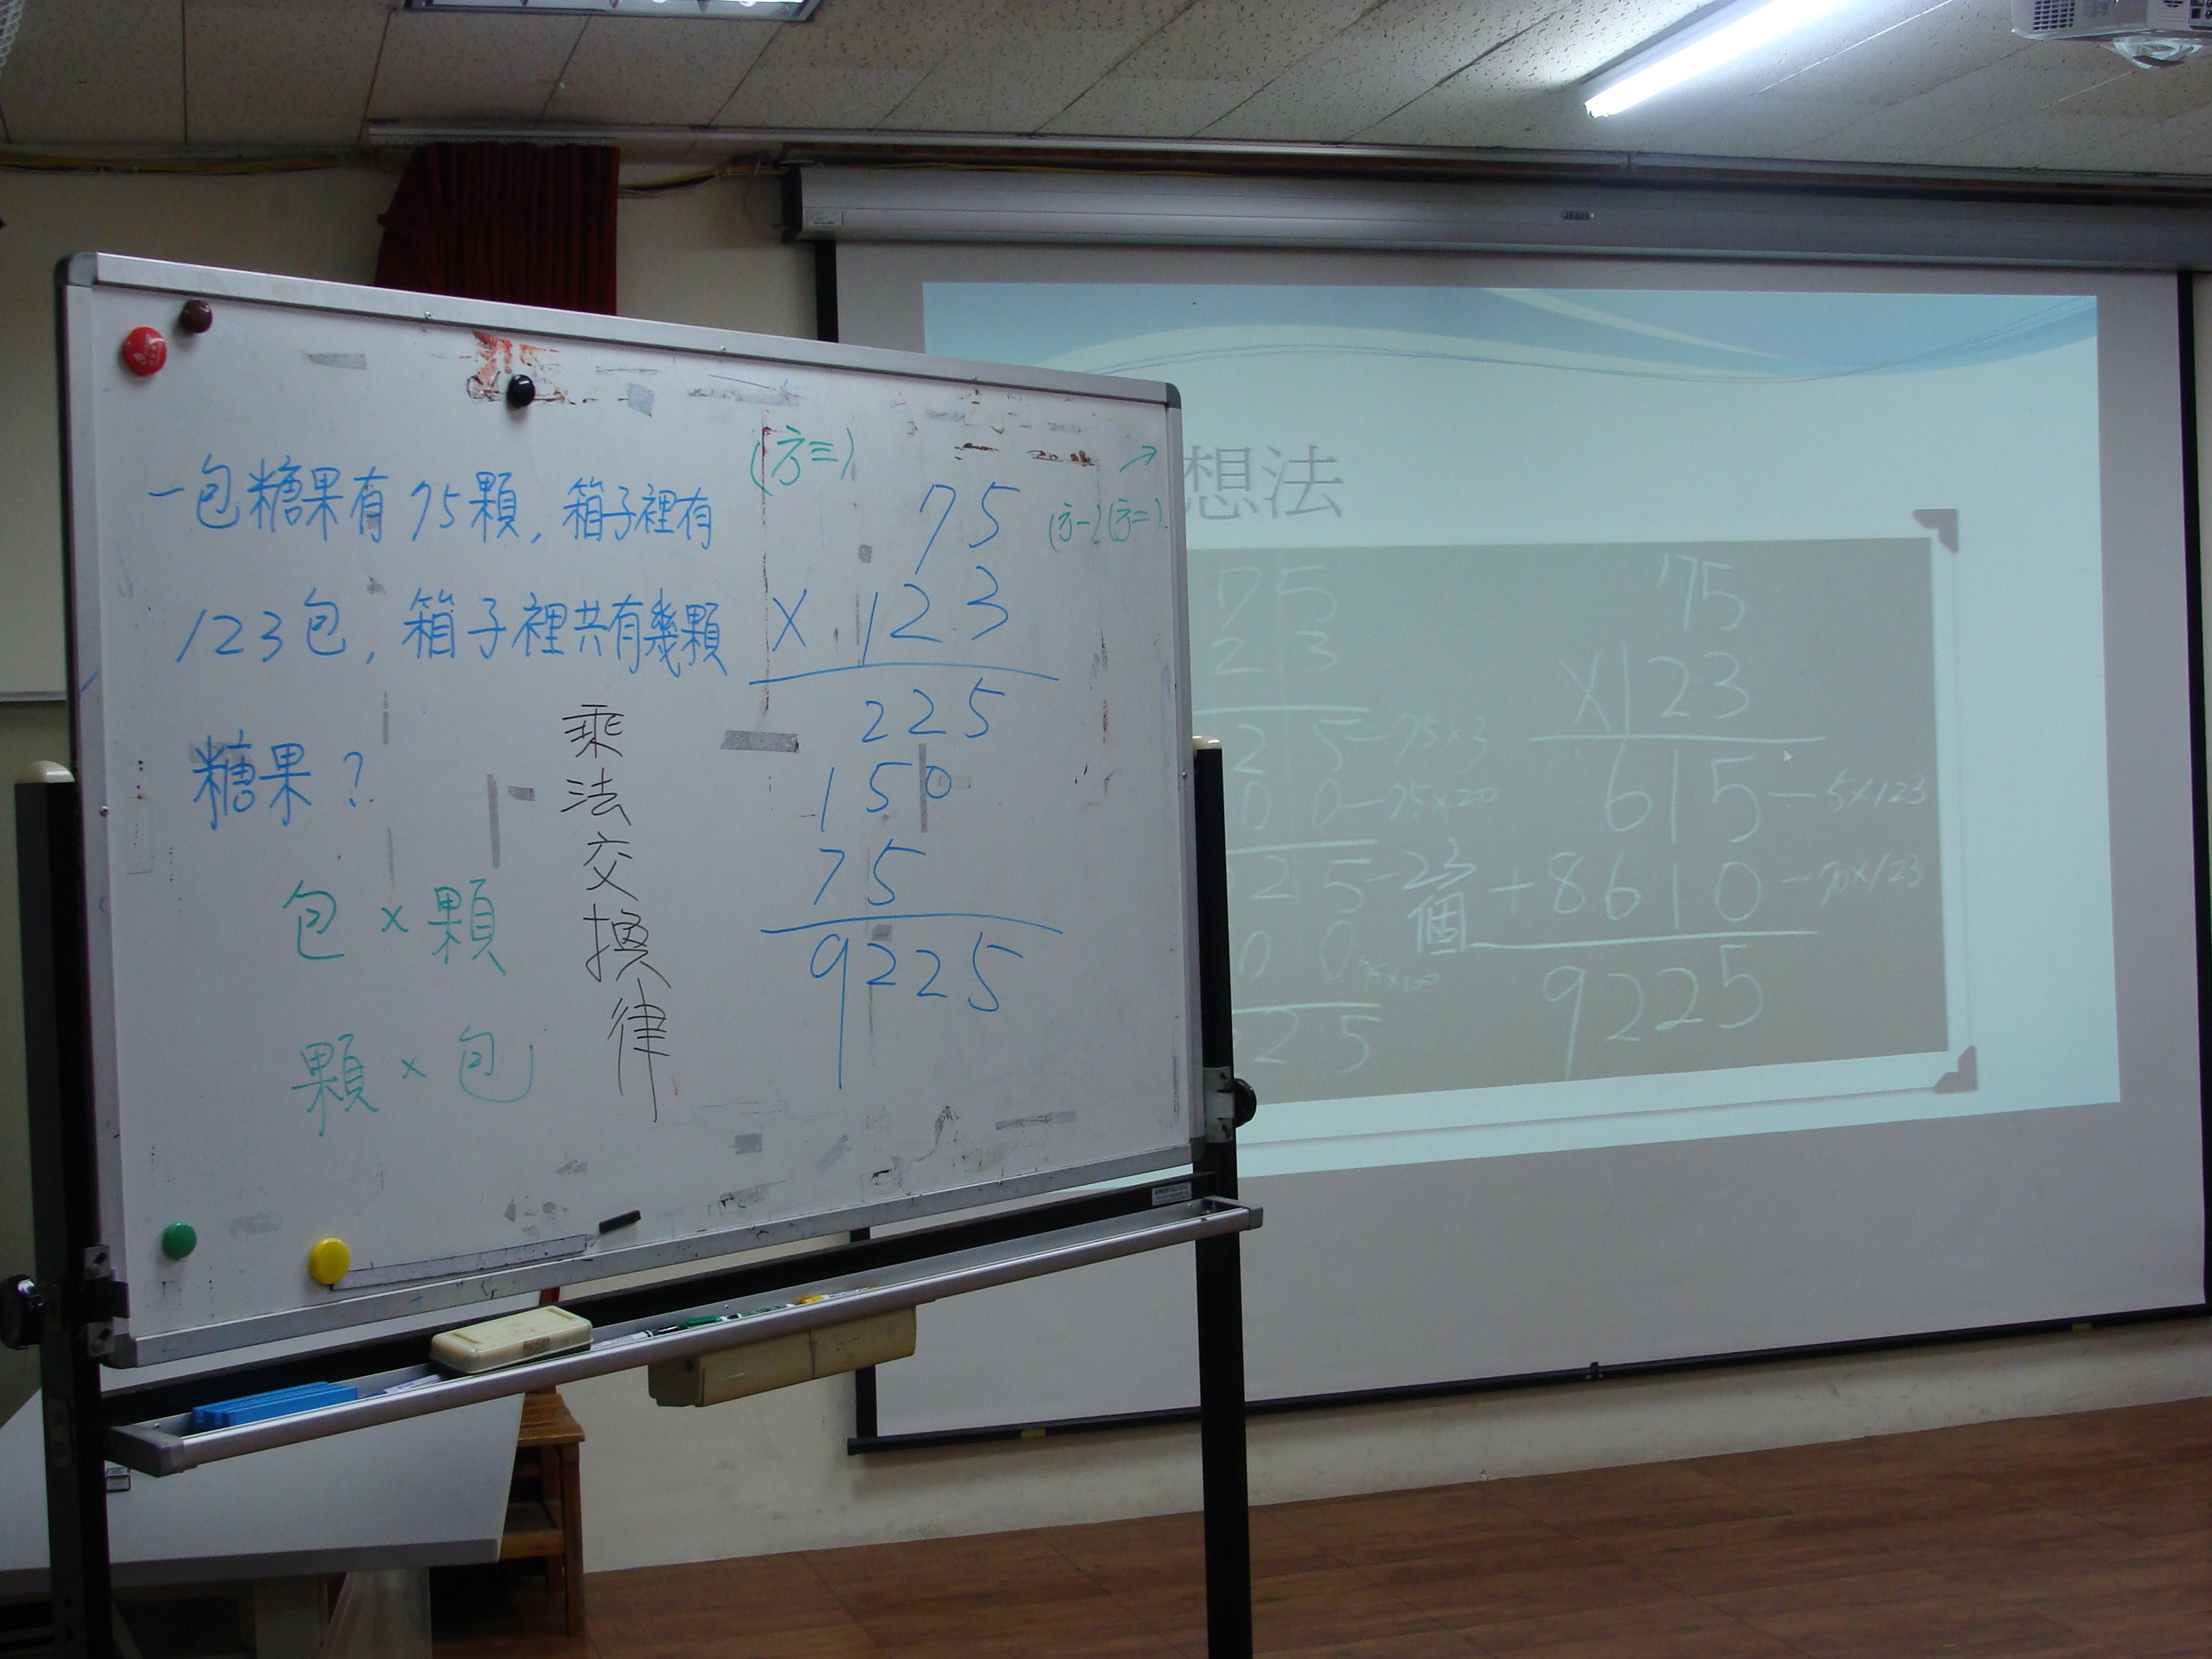 一包糖果有75顆, 箱子裡有
123包, 箱子裡共有幾顆
糖果?
包 × 顆
顆 × 包
乘法交換律
(方三)
75
× 123
225
150
75
9225
(方一)(方二)
想法
75
23
25-75×3
00-75×20
25-23個
00 75×100
25
75
×123
615-5×123
+8610-70×123
9225